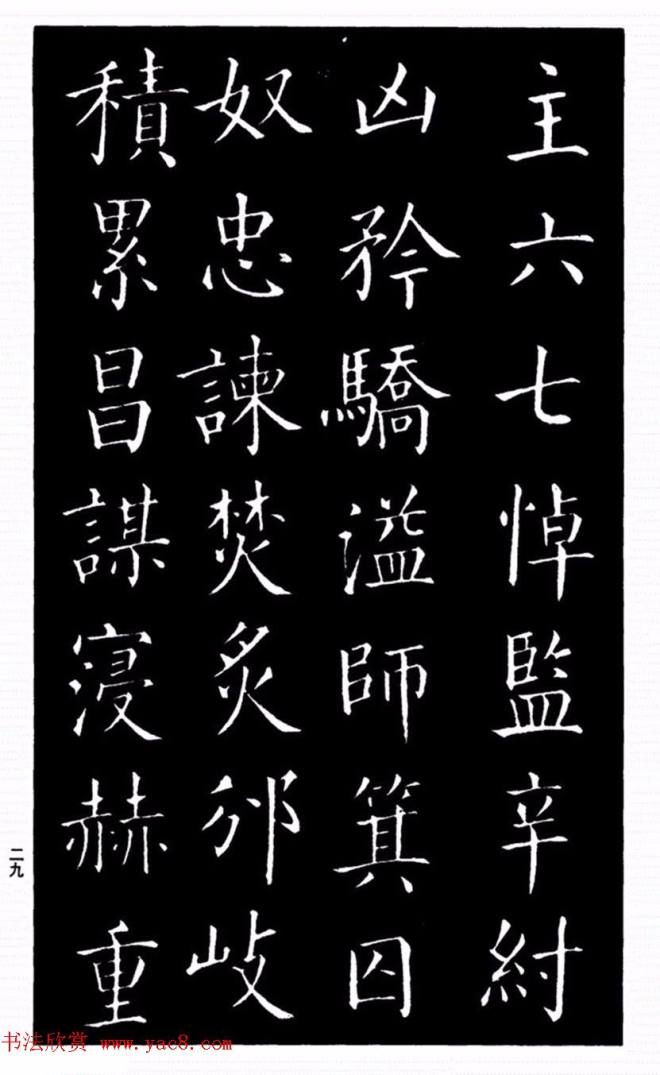 主六七悼監辛紂
凶矜驕溢師箕囚
奴忠諫焚炙邠岐
積累昌謀寖赫重
二九
书法欣赏 www.yac8.com